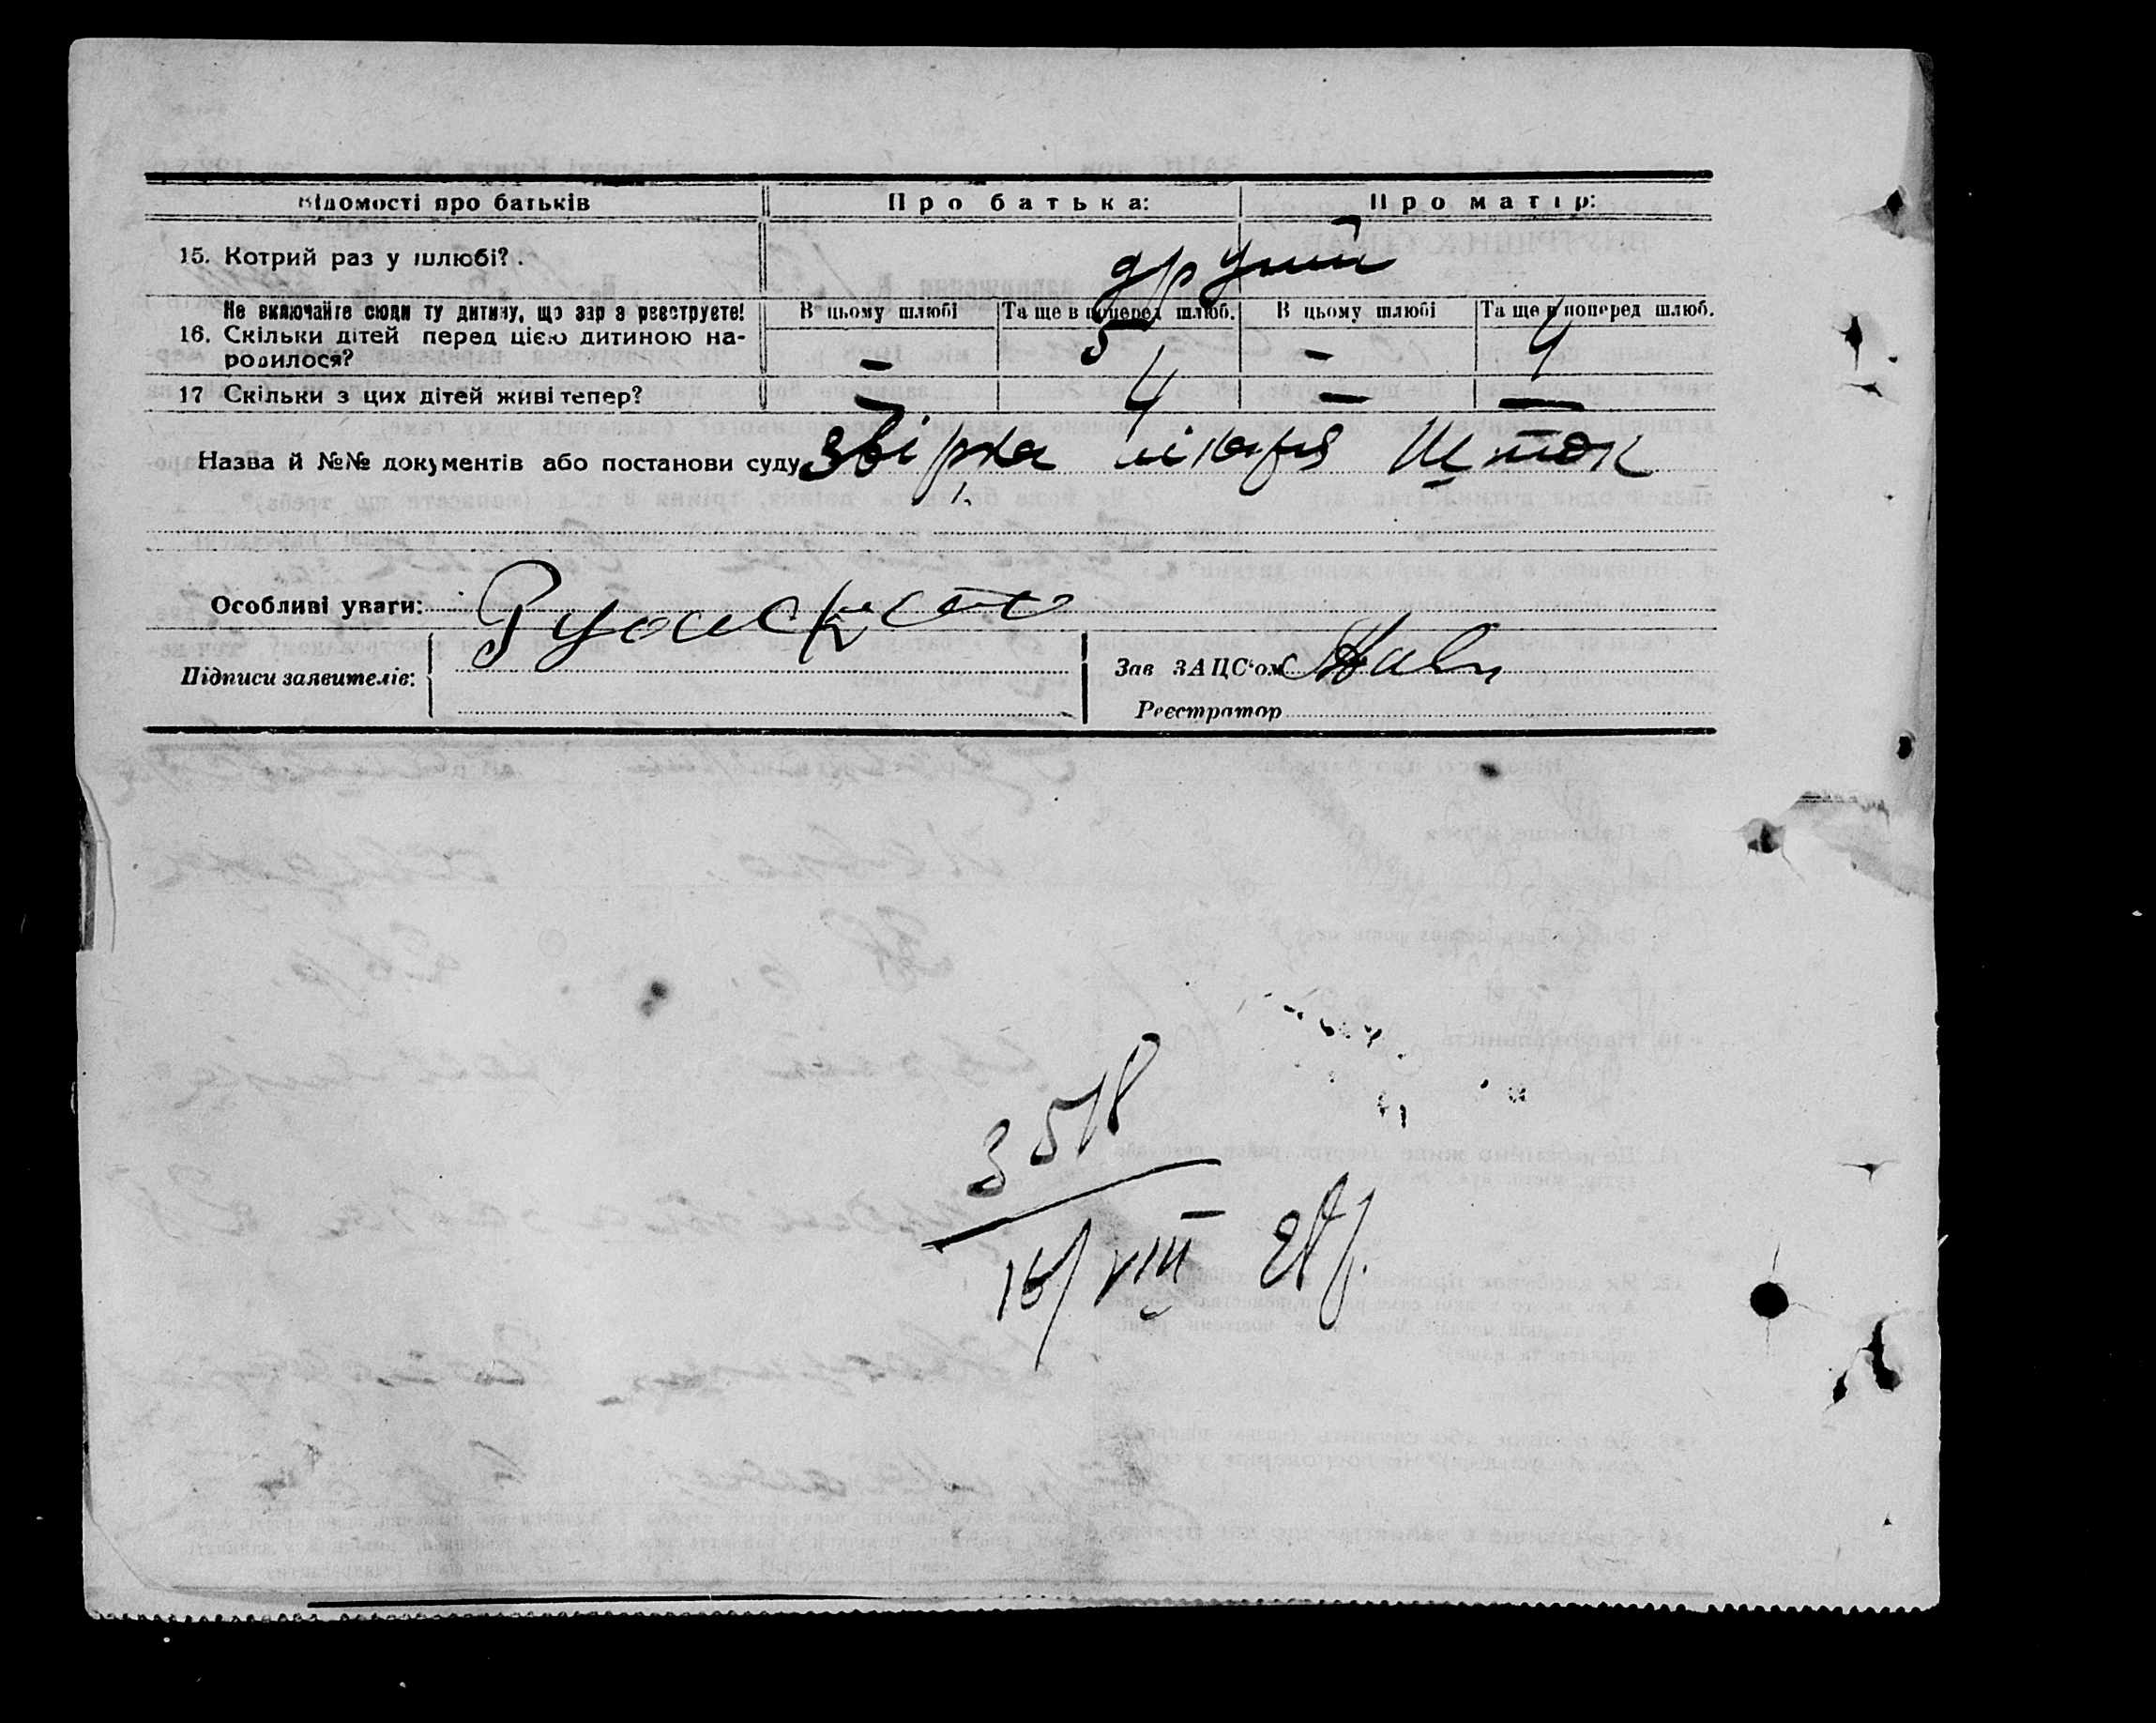 Відомості про батьків Про батька: Про матір:
15. Котрий раз у шлюбі? . другий
Не включайте сюди ту дитину, що зар з реєструєте! В цьому шлюбі Та ще в поперед шлюб. В цьому шлюбі Та ще в поперед шлюб.
16. Скільки дітей перед цією дитиною на-
родилося? – 5 – 4
17 Скільки з цих дітей живі тепер? – 4 – –
Назва й №№ документів або постанови суду лікаря
Особливі уваги:
Підписи заявителів: Зав ЗАЦС‘ом
Реєстратор
3518
16/VIII 28 р.